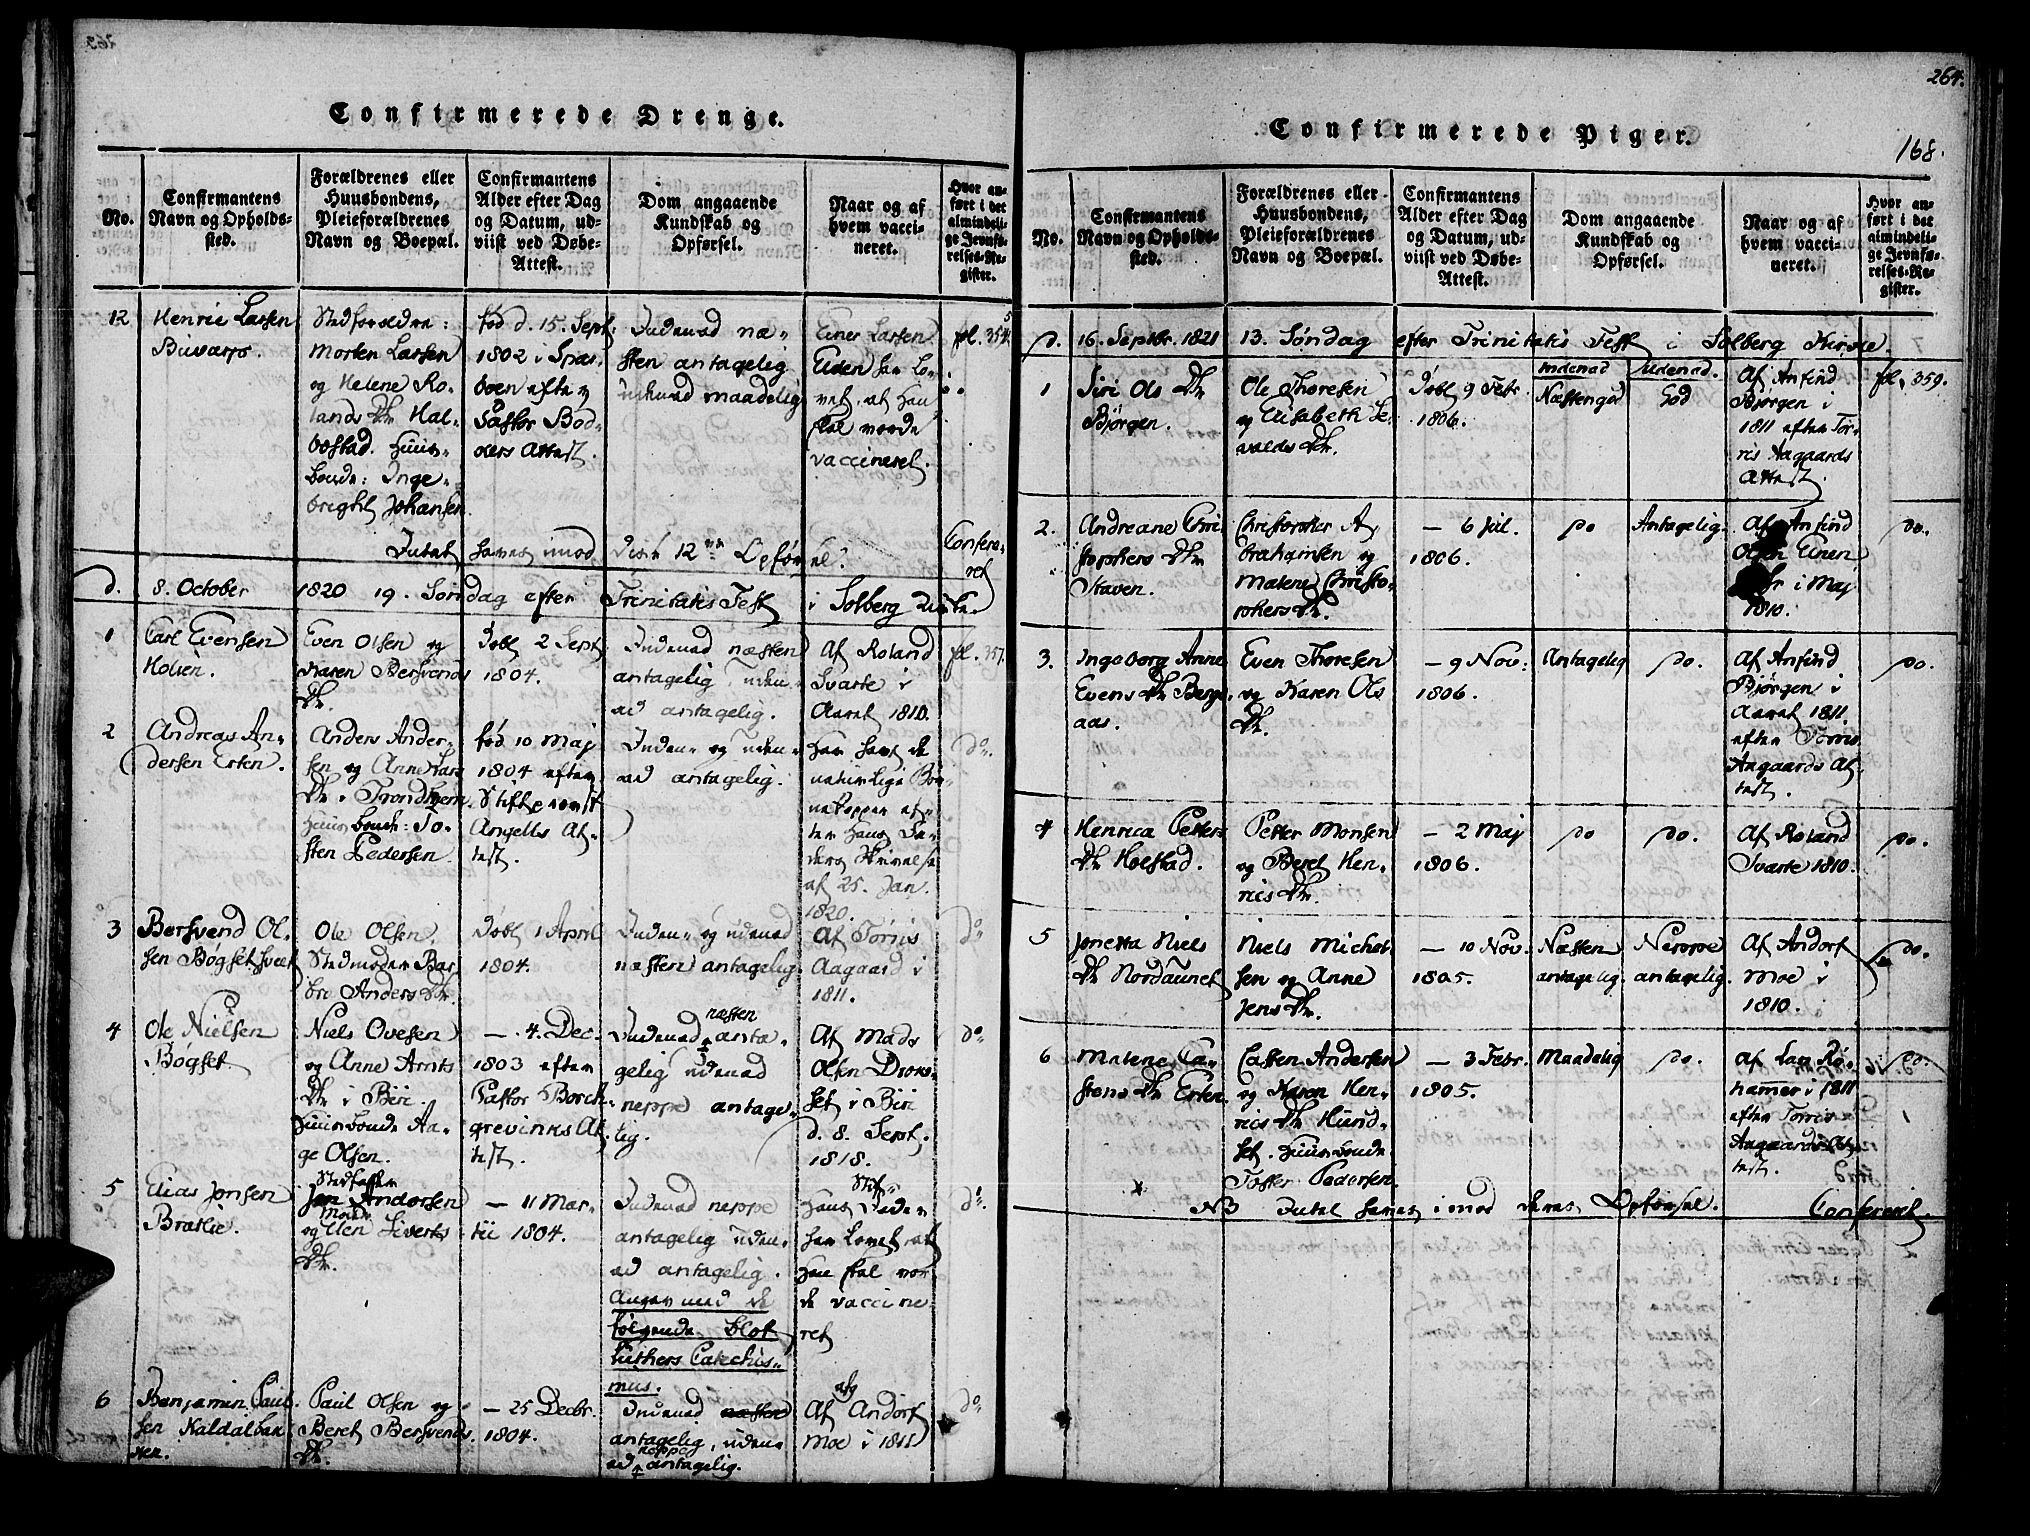 263.
Confirmerede Drenge.
No.
Confirmantens
Navn og Opholds-
sted.
Forældrenes eller
Huusbondens,
Pleieforældrenes
Navn og Boepæl.
Confirmantens
Alder efter Dag
og Datum, ud-
viist ved Døbe-
Attest.
Dom angaaende
Kundskab og
Opførsel.
Naar og af
hvem vacci-
neret.
Hvor an-
ført i det
almindeli-
ge Jevnfø-
relses-Re-
gister.
12
Henric Larsen
Buvarp.
Stedforældre:
Morten Larsen
og Helene Ro-
lands Dtr Hal-
bostad. Huus-
bonde: Inge-
bright Johansen
fød d. 15. Sept.
1802 i Spar-
boen efter
Pastor Bod-
ders Attest.
Indenad næ-
sten antagelig
udenad maadelig
Einer Larsen
Eiden har lo-
vet, at han
skal vorde
vaccineret.
fol. 354.
Intet haves imod disse 12 Opførsel.
Confere-
ret
d. 8. October 1820 19. Søndag efter Trinitatis Fest i Solberg Kirke.
1
Carl Evensen
Holien.
Even Olsen og
Karen Bersvends
Dtr.
Døbt 2 Sept.
1804.
Indenad næsten
antagelig, uden-
ad antagelig.
Af Roland
Svarte i
Aaret 1810.
fol. 357.
2
Andreas An-
dersen Erten.
Anders Ander-
sen og Anne Lars
Dtr. i Trondhiem
Huusbonde: To-
sten Pedersen.
fød 10 Maj
1804 efter
Stiftsprovst
Angells At-
test.
Inden- og uden-
ad antagelig.
Har havt de
naturlige Bør-
nekopper ef-
ter Hans Fa-
ders Skrivelse
af 25. Jan.
1820.
do.
3
Bersvend Ol-
sen Bøgset svedt
Ole Olsen.
Stedmoder Bar-
bro Anders Dtr.
Døbt 1 April
1804.
Inden- og udenad
næsten antagelig.
Af Torris
Aagaard i
1811.
do
4
Ole Nielsen
Bøgset.
Niels Ovesen
og Anne Arnts
Dtr i Biri.
Huusbonde Aa-
ge Olsen.
— 4. Dec.
1803 efter
Pastor Borch-
grevinks At-
test.
Indenad næsten anta-
gelig udenad
neppe antage-
lig.
Af Mads
Olsen Drons-
set i Biri
d. 8. Sept.
1818.
do
5
Elias Jonsen
Bratlie.
Stedfader
Jon Andorsen
Moder
og Elen Siverts
Dtr.
— 11 Mar-
tii 1804.
Indenad neppe
antagelig uden-
ad antagelig.
Angav med de
følgende blot
Luthers Catechis-
mus.
Stif-
Hans Fader
har lovet, at
Han skal vor-
de vaccine-
ret
do.
6
Benjamin Paul-
sen Kaldalbak-
ken.
Paul Olsen og
Beret Bersvends
Dtr.
— 25 Decbr.
1804.
Indenad næsten
antagelig, uden-
ad neppe antagelig.
Af Andorf
Moe i 1811
do
264.
168.
Confirmerede Piger.
No.
Confirmantens
Navn og Opholds-
sted.
Forældrenes eller
Huusbondens,
Pleieforældrenes
Navn og Boepæl.
Confirmantens
Alder efter Dag
og Datum, ud-
viist ved Døbe-
Attest.
Dom angaaende
Kundskab og
Opførsel.
Naar og af
hvem vacci-
neret.
Hvor an-
ført i det
almindeli-
ge Jevnfø-
relses-Re-
gister.
d. 16. Septbr. 1821 13. Søndag efter Trinitatis Fest i Solberg Kirke.
1
Siri Ols Dtr
Bjørgen.
Ole Thoresen
og Elisabeth Se-
valds Dtr.
Døbt 9 Febr.
1806.
Indenad
Næsten god
Udenad.
God
Af Anfind
Bjørgen i
1811 efter Tor-
ris Aagaards
Attest.
fol. 359.
2.
Andreane Chri-
stophers Dtr
Staven.
Christopher A-
brahamsen og
Malene Christo-
phers Dtr.
— 6 Jul.
1806.
do
Antagelig.
Af Anfind
Olsen Einen
i Maj
1810.
do.
3.
Ingeborg Anne
Evens Dtr Bergs-
aas.
Even Thoresen
og Karen Ols
Dtr.
— 9 Nov:
1806.
Antagelig
do.
Af Anfind
Bjørgen i
Aaret 1811.
efter Torris
Aagaards At-
test.
do.
4
Henrica Petters
Dtr Holstad.
Petter Monsen
og Beret Hen-
rics Dtr.
— 2 Maj
1806.
do
do.
Af Roland
Svarte 1810.
do.
5
Jonetta Niels
Dtr Nordaunet
Niels Michel-
sen og Anne
Jens Dtr.
— 10 Nov.
1805.
Næsten
antagelig.
Neppe
antagelig.
Af Andorf
Moe i
1810.
do.
6
Malene Ca-
stens Dtr Erten.
Casten Andersen
og Karen Hen-
rics Dtr Hund-
set. Huusbonde
Tosten Pedersen.
— 3 Febr.
1805.
Maadelig
do.
Af Lars Rø-
hamer i 1811
efter Torris
Aagaards At-
test.
do.
NB Intet haves imod deres Opførsel.
Confereret.